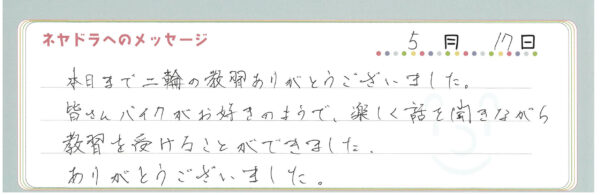 ネヤドラへのメッセージ
5月17日
本日まで二輪の教習ありがとうございました。
皆さんバイクがお好きのようで、楽しく話を聞きながら
教習を受けることができました。
ありがとうございました。